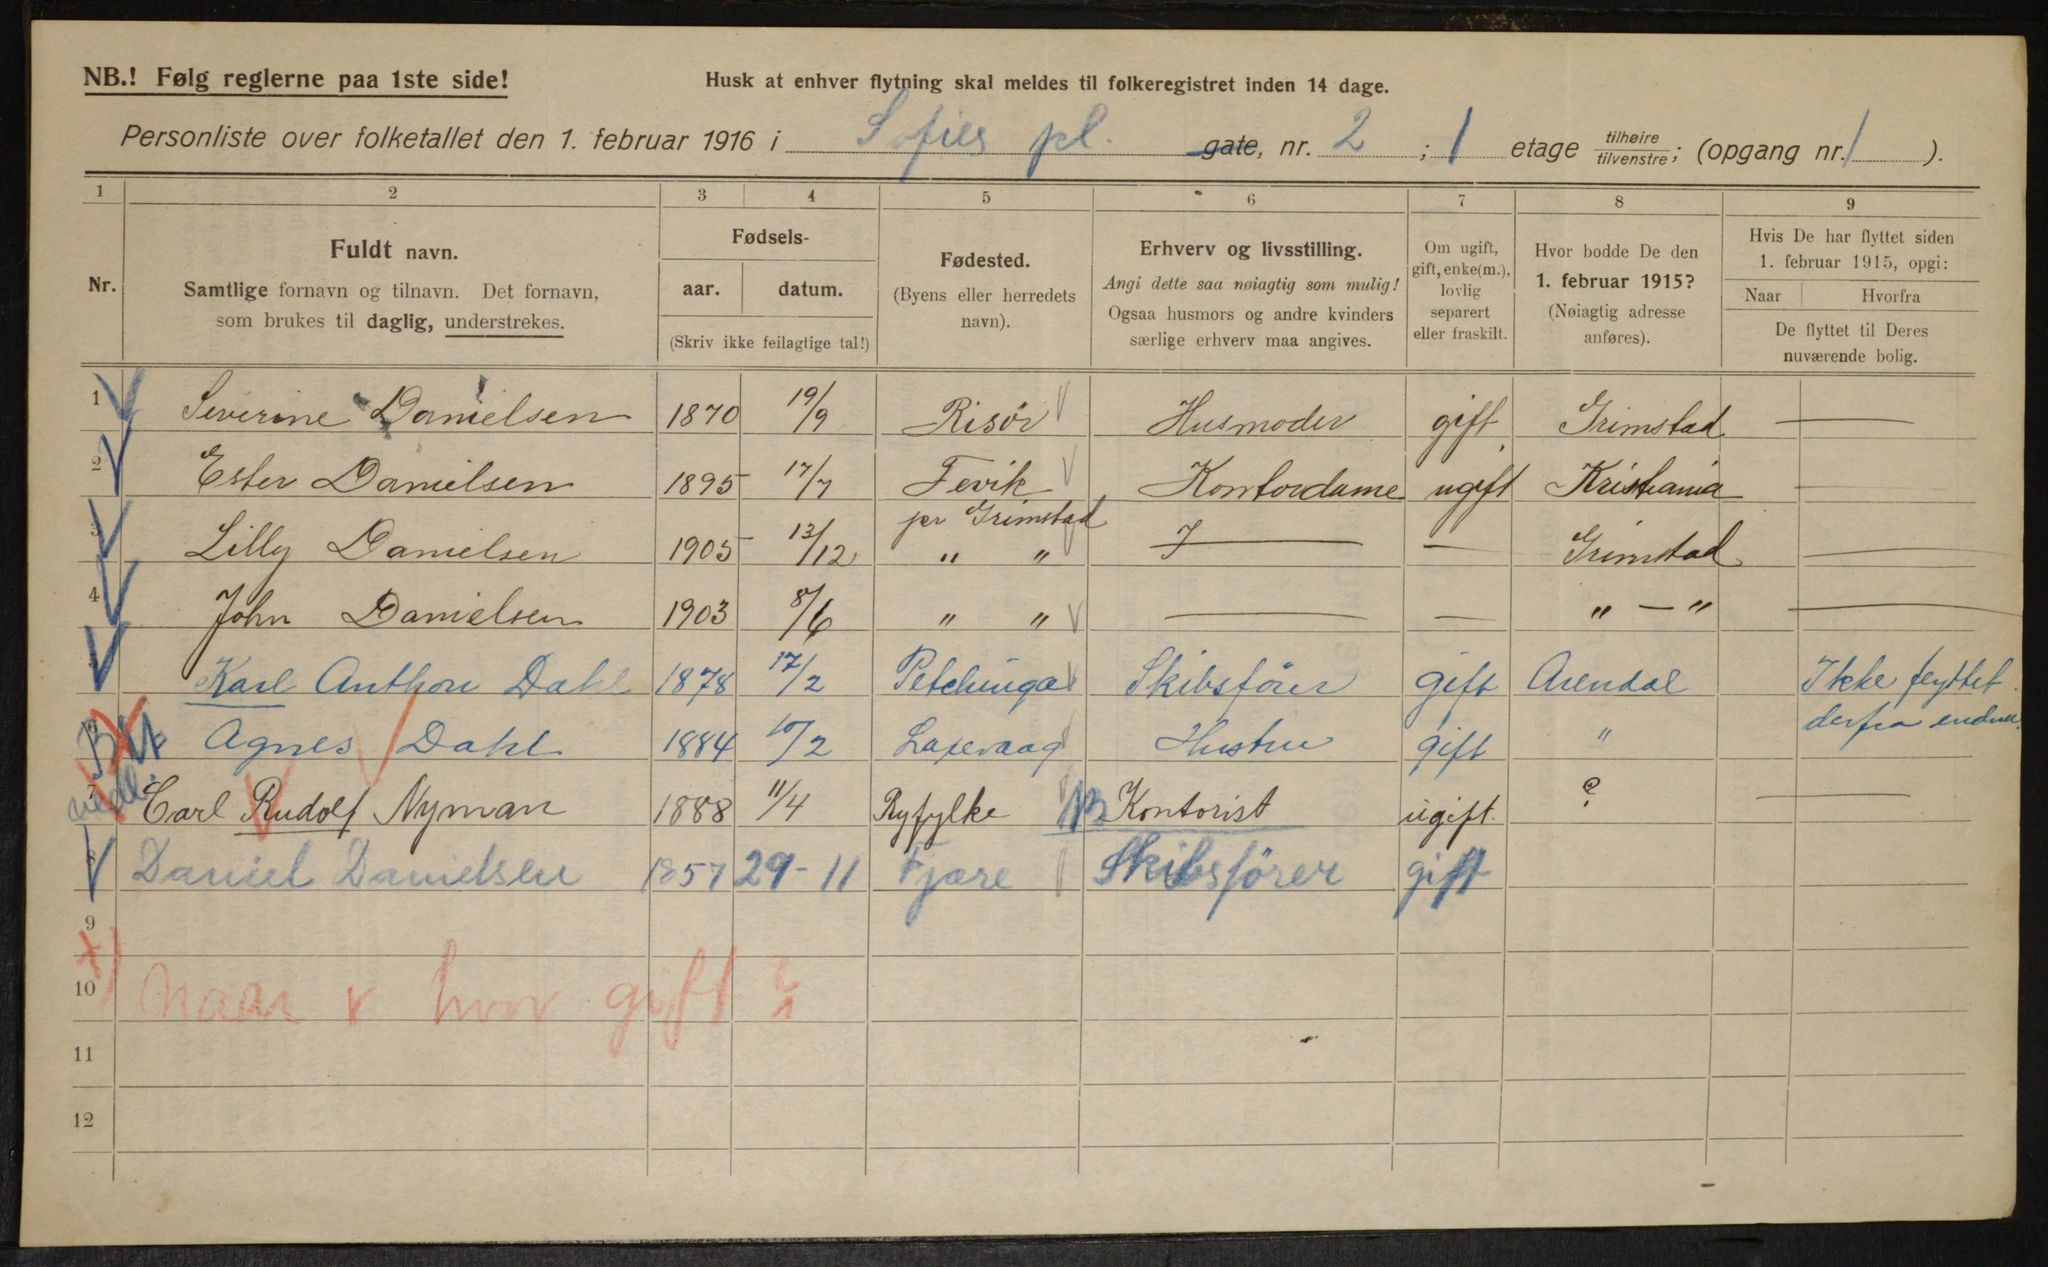 NB.! Følg reglerne paa 1ste side!
Husk at enhver flytning skal meldes til folkeregistret inden 14 dage.
Personliste over folketallet den 1. februar 1916 i Sofies pl. gate, nr. 2 ; 1 etage tilhøire/tilvenstre; (opgang nr. 1 ).
1 2 3 4 5 6 7 8 9
Nr.
Fuldt navn.
Samtlige fornavn og tilnavn. Det fornavn,
som brukes til daglig, understrekes.
Fødsels-
aar. datum.
(Skriv ikke feilagtige tal!)
Fødested.
(Byens eller herredets
navn).
Erhverv og livsstilling.
Angi dette saa nøiagtig som mulig!
Ogsaa husmors og andre kvinders
særlige erhverv maa angives.
Om ugift,
gift, enke(m.),
lovlig
separert
eller fraskilt.
Hvor bodde De den
1. februar 1915?
(Nøiagtig adresse
anføres).
Hvis De har flyttet siden
1. februar 1915, opgi:
Naar Hvorfra
De flyttet til Deres
nuværende bolig.
1 Severine Danielsen 1870 19/9 Risör Husmoder gift Grimstad —
2 Ester Danielsen 1895 17/7 Fevik Kontordame ugift Kristiania —
pr Grimstad
3 Lilly Danielsen 1905 13/12 " " — — Grimstad —
4 John Danielsen 1903 8/6 " " — — " — " —
5 Karl Anthon Dahl 1878 17/2 Petchinga Skibsfören gift Arendal Ikke flyttet
derfra endnu.
6 Agnes Dahl 1884 10/2 Laxevaag Hustru gift "
7 Carl Rudolf Nyman 1888 11/4 Ryfylke Kontorist ugift. ? —
8 Daniel Danielsen 1857 29-11 Fjære Skibsförer gift
9
10 Naar & hvor gift?
11
12